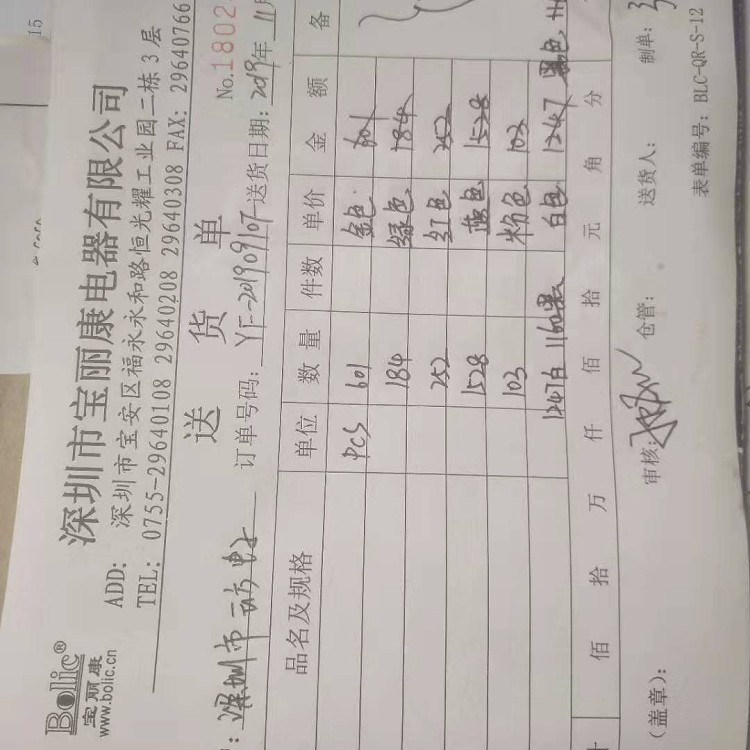 15
Bolic®
宝丽康
www.bolic.cn
深圳市宝丽康电器有限公司
ADD: 深圳市宝安区福永永和路恒光耀工业园二栋3层
TEL: 0755-29640108 29640208 29640308 FAX: 29640766
送货单
No.1802
：深圳市 订单号码: YF-20190907 送货日期: 2019年11月
品名及规格 单位 数量 件数 单价 金额 备
PCS 601 金色 601
184 绿色 184
252 红色 252
1528 蓝色 1528
103 粉色 103
1247白 1160黑 白色 1247 黑色
佰 拾 万 仟 佰 拾 元 角 分
(盖章): 审核: 仓管: 送货人: 制单:
表单编号: BLC-QR-S-12